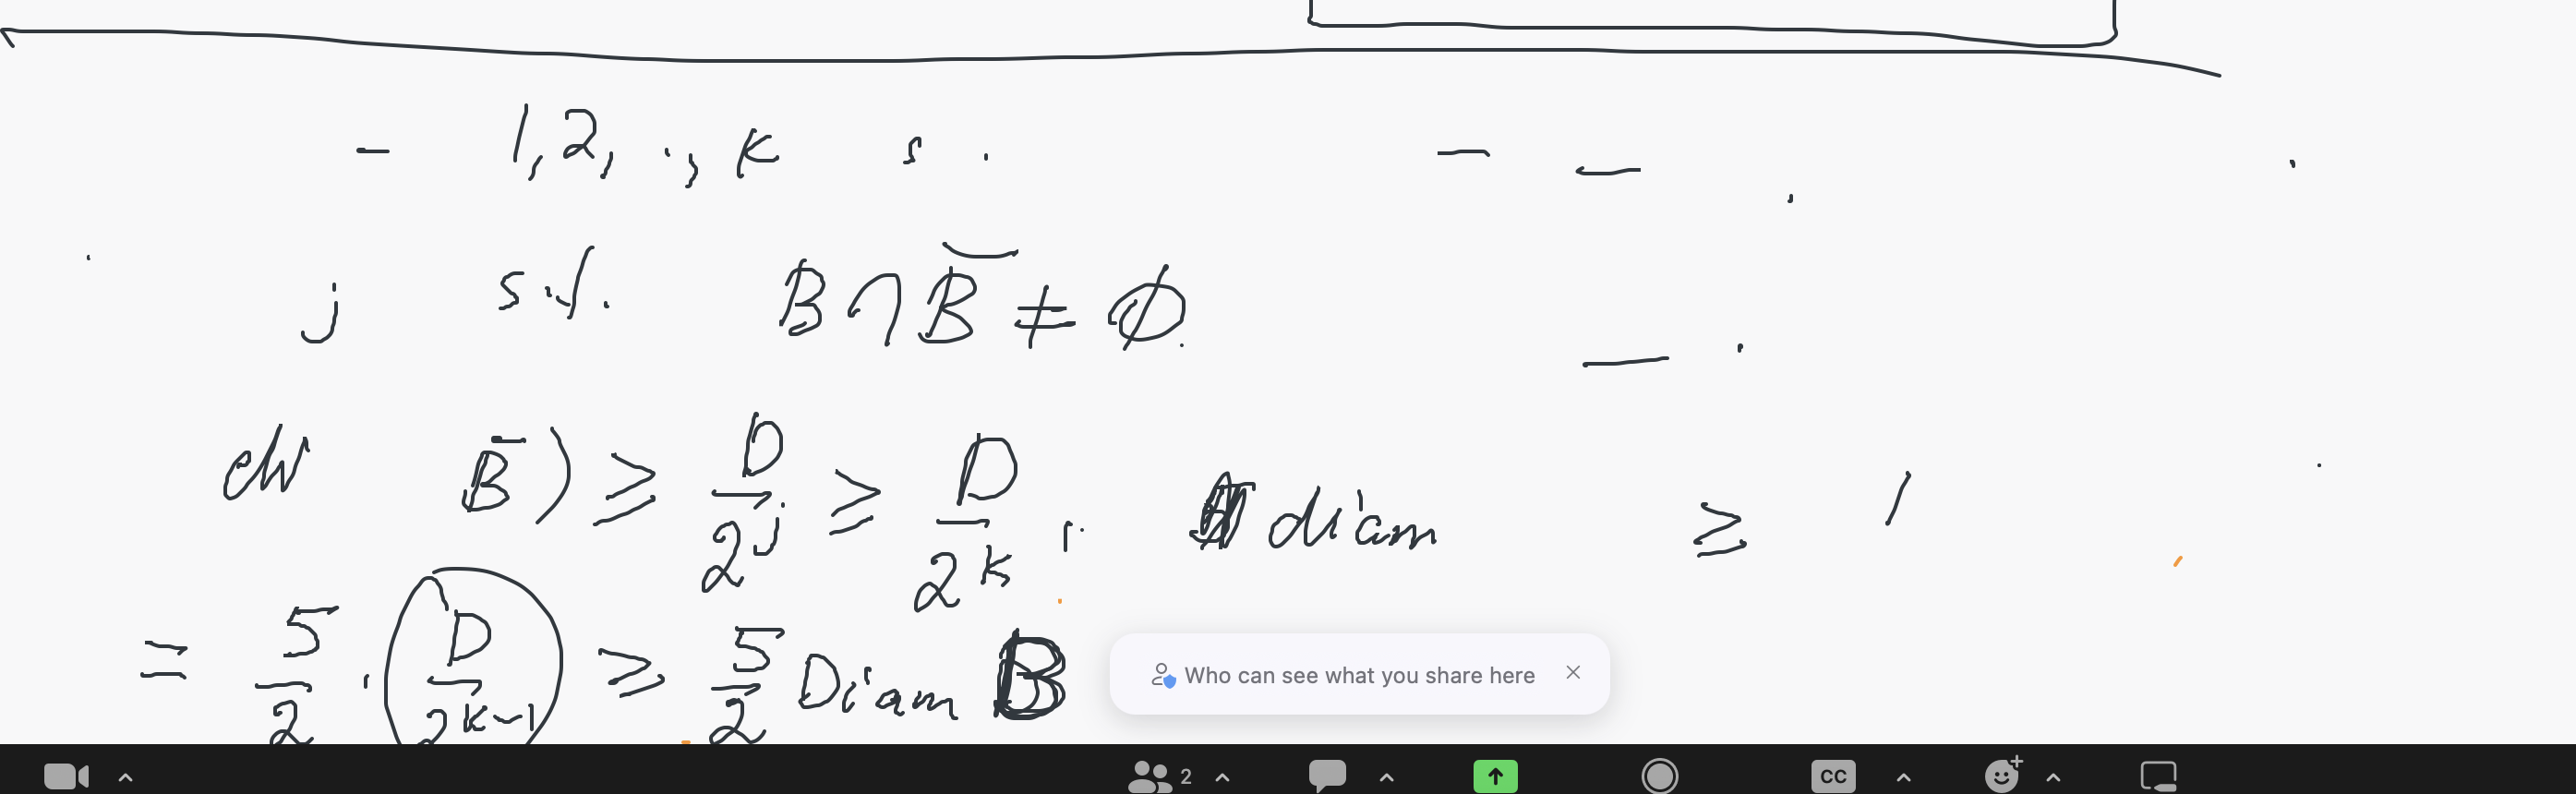 - 1,2, ., k s .
j s.t. B ∩ B̄ ≠ ∅.
B̄ ) ≥ D/2^j ≥ D/2^k . diam ≥
= 5/2 · D/2^{k-1} ≥ 5/2 Diam B
Who can see what you share here
2 CC